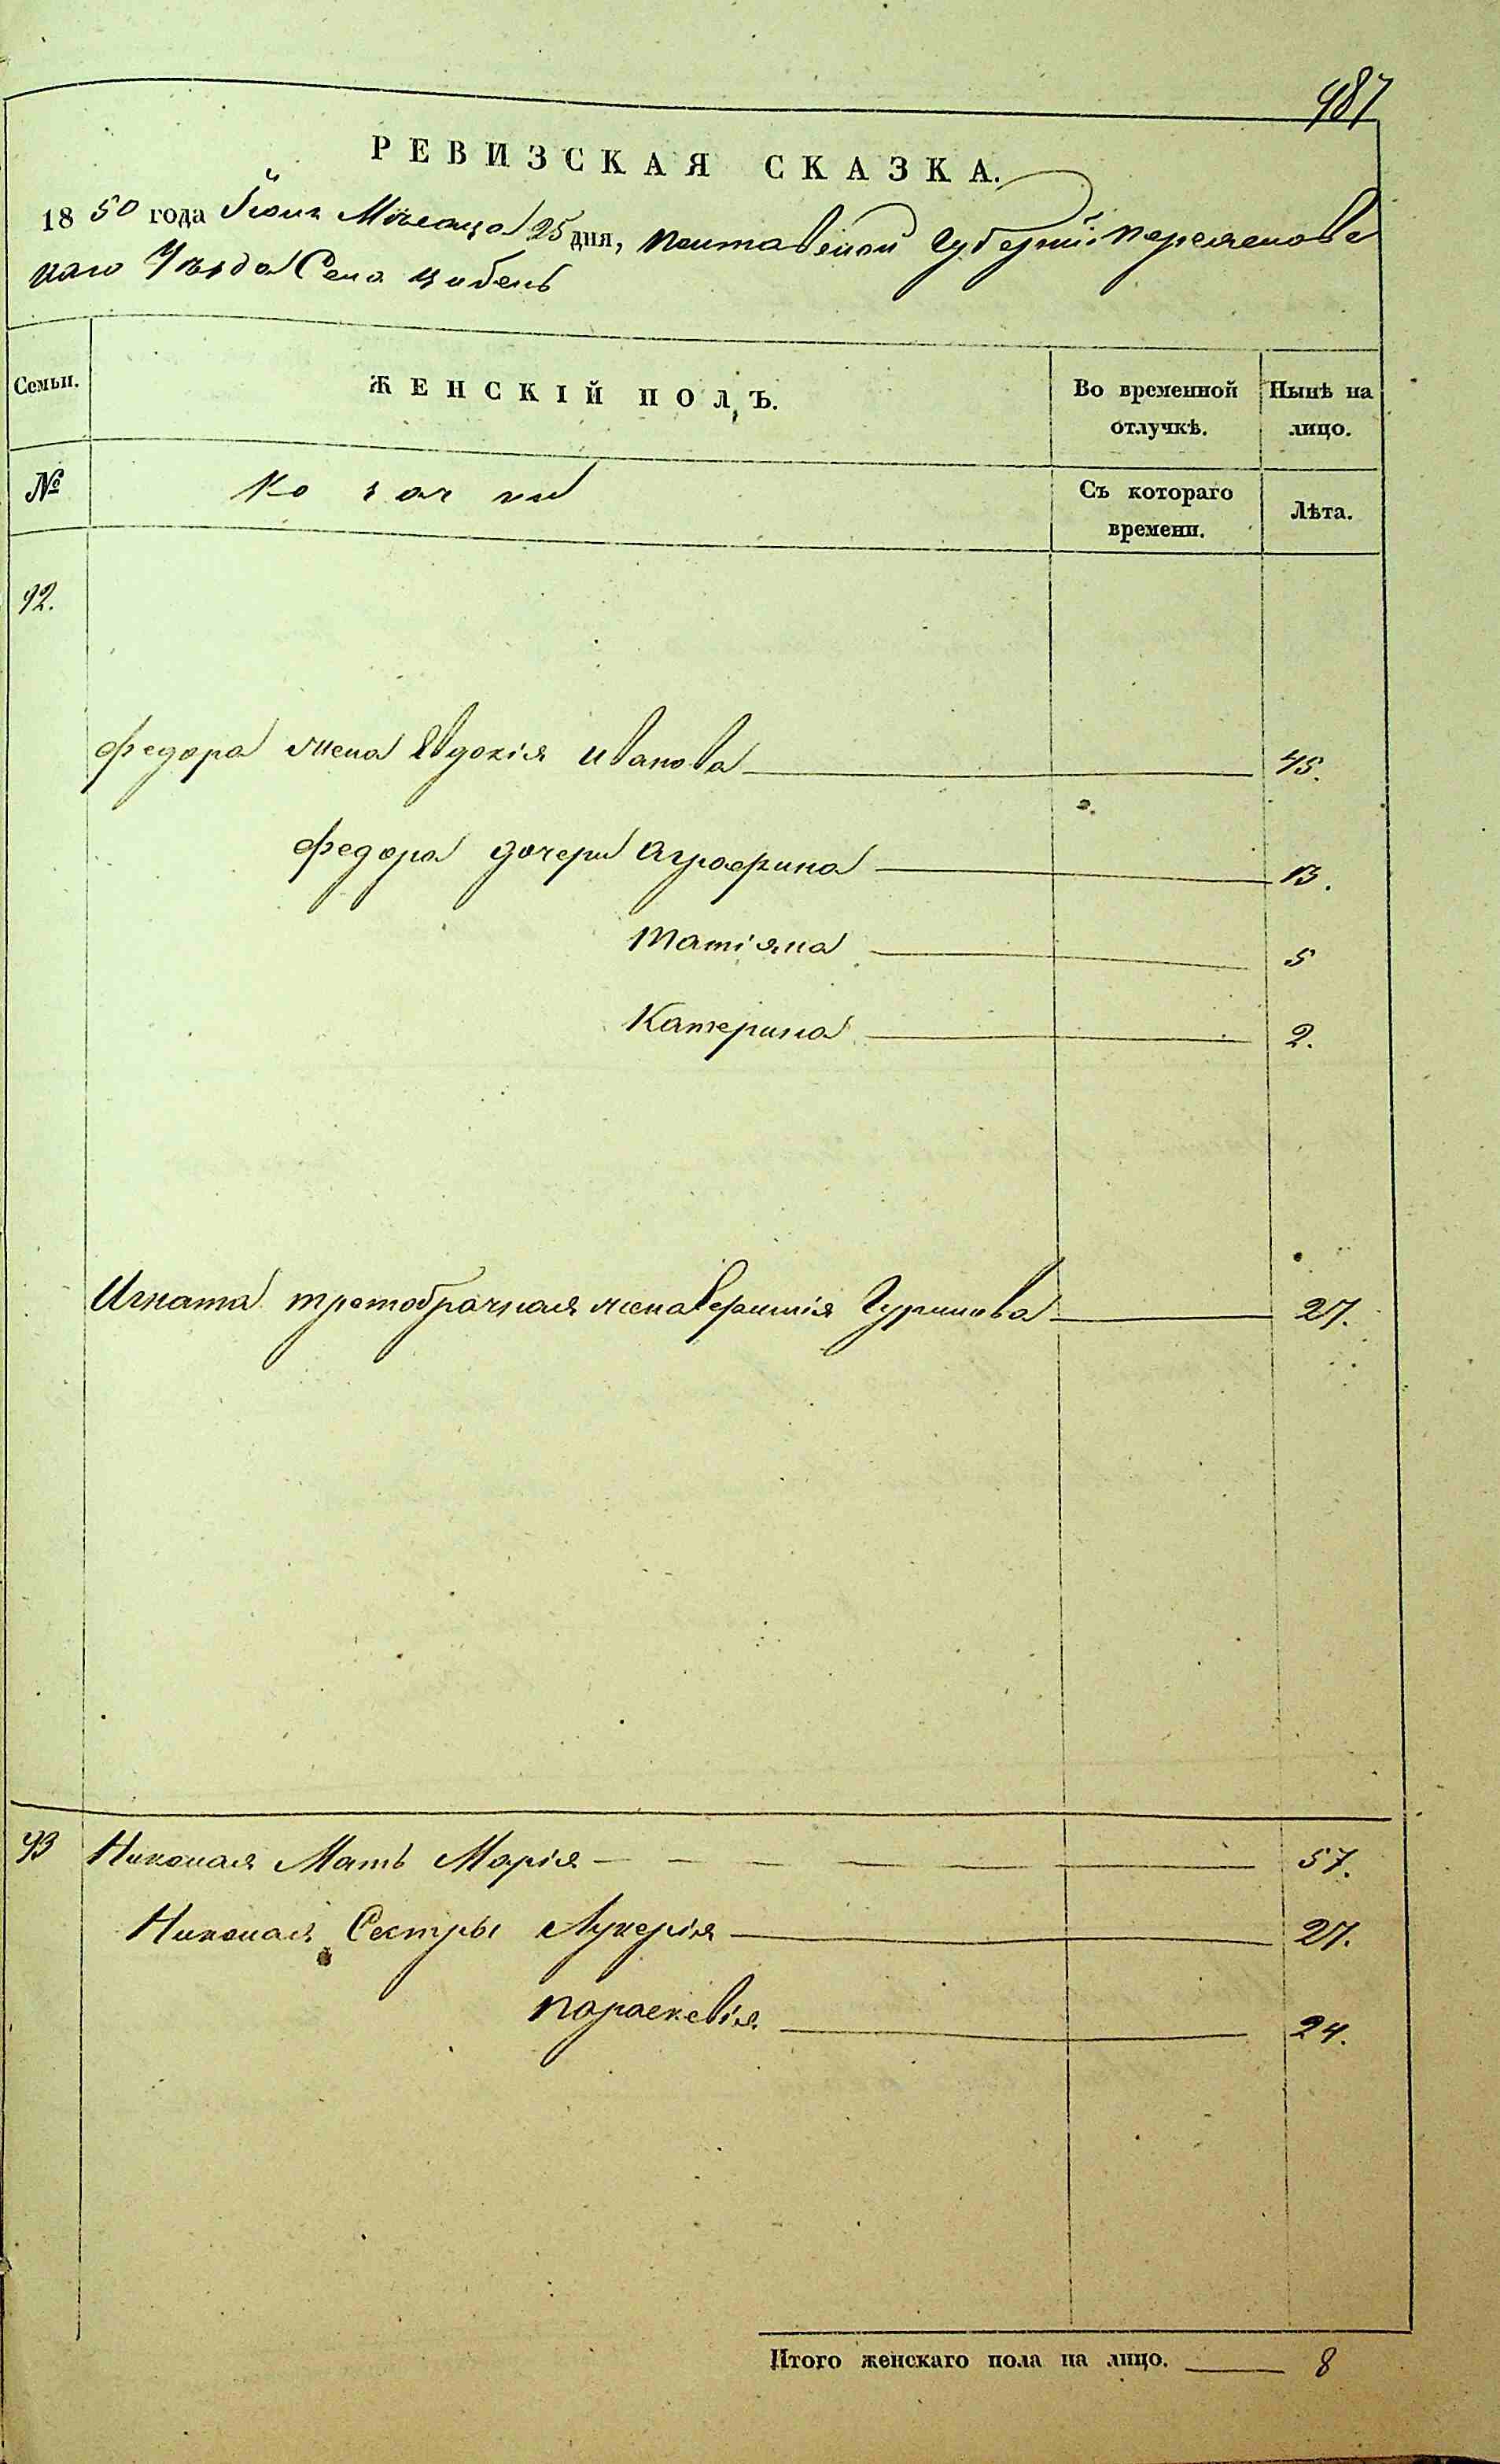 487
РЕВИЗСКАЯ СКАЗКА.
1850 года Июня Месяца 25 дня, Полтавской Губернiи Переяславс
каго Уезда Села Цибель
Семьи. ЖЕНСКIЙ ПОЛЪ. Во временной отлучкѣ. Нынѣ на лицо.
№ Козачки Съ котораго времени. Лѣта.
92.
Федора жена Евдокiя Иванова 45.
Федора дочери Аграфина 13.
Татiяна 5
Катерина 2.
Игната третобрачная жена Гуринова 27.
93 Николая Мать Марiя 57.
Николая Сестры Лукерiя 27.
Параскевiя 24.
Итого женскаго пола на лицо. 8